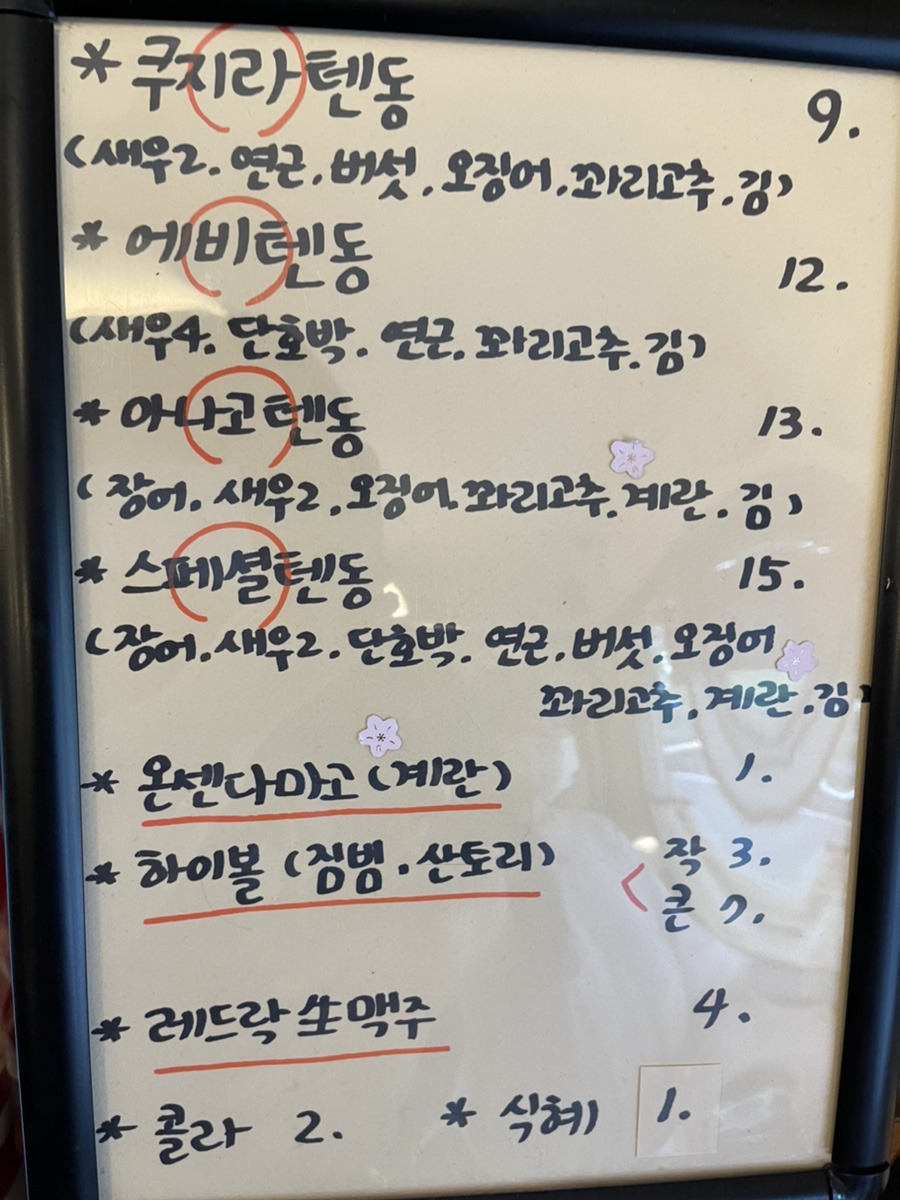 * 쿠지라텐동 9.
(새우2. 연근. 버섯. 오징어. 꽈리고추. 김)
* 에비텐동 12.
(새우4. 단호박. 연근. 꽈리고추. 김)
* 아나고텐동 13.
(장어. 새우2. 오징어. 꽈리고추. 계란. 김)
* 스페셜텐동 15.
(장어. 새우2. 단호박. 연근. 버섯. 오징어
꽈리고추. 계란. 김)
* 온센다마고 (계란) 1.
* 하이볼 (짐빔. 산토리) < 작 3.
큰 7.
* 레드락 生맥주 4.
* 콜라 2. * 식혜 1.